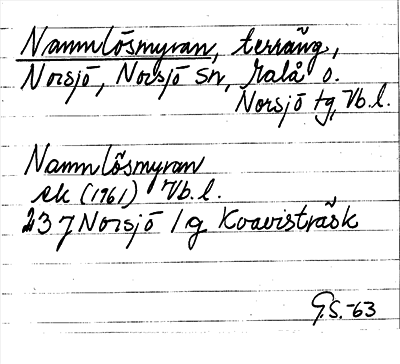 Namnlösmyran, terräng,
Norsjö, Norsjö sn, Malå o.
Norsjö tg, Vb.l.
Namnlösmyran
ek (1961) Vb.l.
237 Norsjö /g Kvavisträsk
G.S. -63